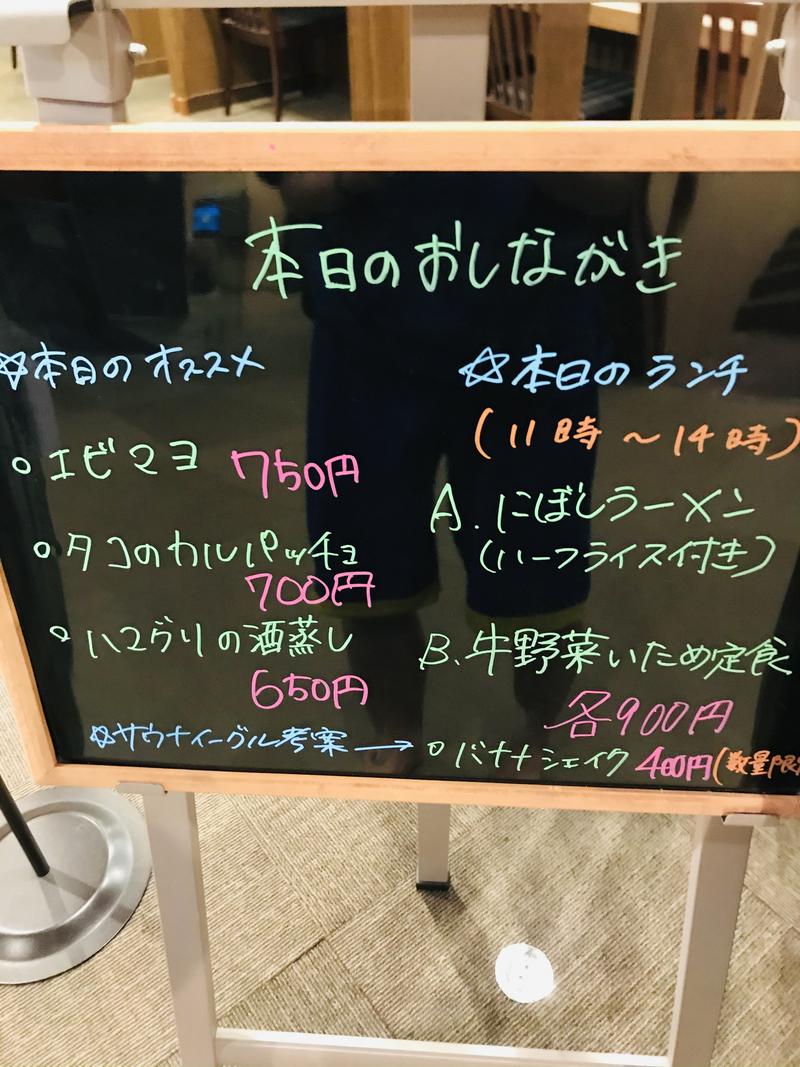 本日のおしながき
☆本日のオススメ
○エビマヨ 750円
○タコのカルパッチョ
700円
○ハマグリの酒蒸し
650円
☆本日のランチ
(11時～14時)
A.にぼしラーメン
(ハーフライス付き)
B.牛野菜いため定食
各900円
☆サウナイーグル考案→○バナナシェイク 400円(数量限